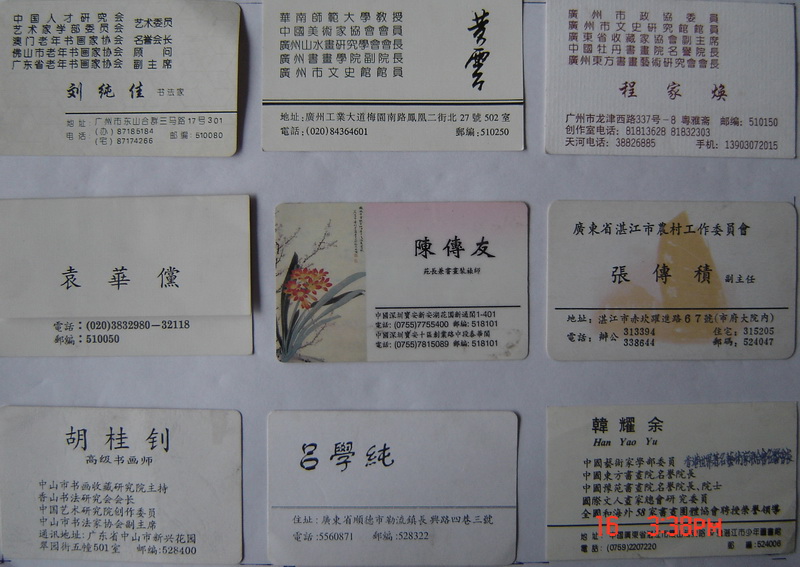 中国人才研究会
艺术家学部委员会 艺术委员
澳门老年书画家协会 名誉会长
佛山市老年书画家协会 顾问
广东省老年书画家协会 副主席
刘纯佳 书法家
地址 广州市东山合群三马路17号301
电话 (办) 87185184 邮编:510080
(宅) 87174266
華南師範大學教授
中國美術家協會會員
廣州山水畫研究學會會長
廣州書畫學院副院長
廣州市文史館館員
黄雲
地址:廣州工業大道梅園南路鳳凰二街北27號502室
電話:(020)84364601 郵編:510250
廣州市政協委員
廣州市文史研究館館員
廣東省收藏家協會副主席
中國牡丹書畫院名譽院長
廣州東方書畫藝術研究會會長
程家焕
广州市龙津西路337号-8 粤雅斋 邮编:510150
创作室电话:81813628 81832303
天河电话:38826885 手机:13903072015
袁華儻
電話:(020)3832980—32118
郵編:510050
陳傳友
苑長兼書畫裝裱師
中國深圳寶安新安湖花園新通閣1-401
電話:(0755)7755400 郵編:518101
中國深圳寶安十區創業路中段泰華閣
電話:(0755)7815089 郵編:518101
廣東省湛江市農村工作委員會
張傳積 副主任
地址:湛江市赤坎躍進路67號(市府大院内)
電話:辦公 313394 住宅:315205
338644 郵碼:524047
胡桂钊
高级书画师
中山市书画收藏研究院主持
香山书法研究会会长
中国艺术研究院创作委员
中山市书法家协会副主席
通讯地址:广东省中山市新兴花园
翠园街五幢501室 邮编:528400
吕學純
住址:廣東省順德市勒流鎮長興路四巷三號
電話:5560871 郵編:528322
韓耀余
Han Yao Yu
中國藝術家學部委員
中國東方書畫院名譽院長
中國豫苑書畫院名譽院長、院士
國際文人畫家總會研究委員
全國和海外58家書畫團體協會聘授榮譽領導
電話:(0759)2207220 郵編:524006
16 3:30PM